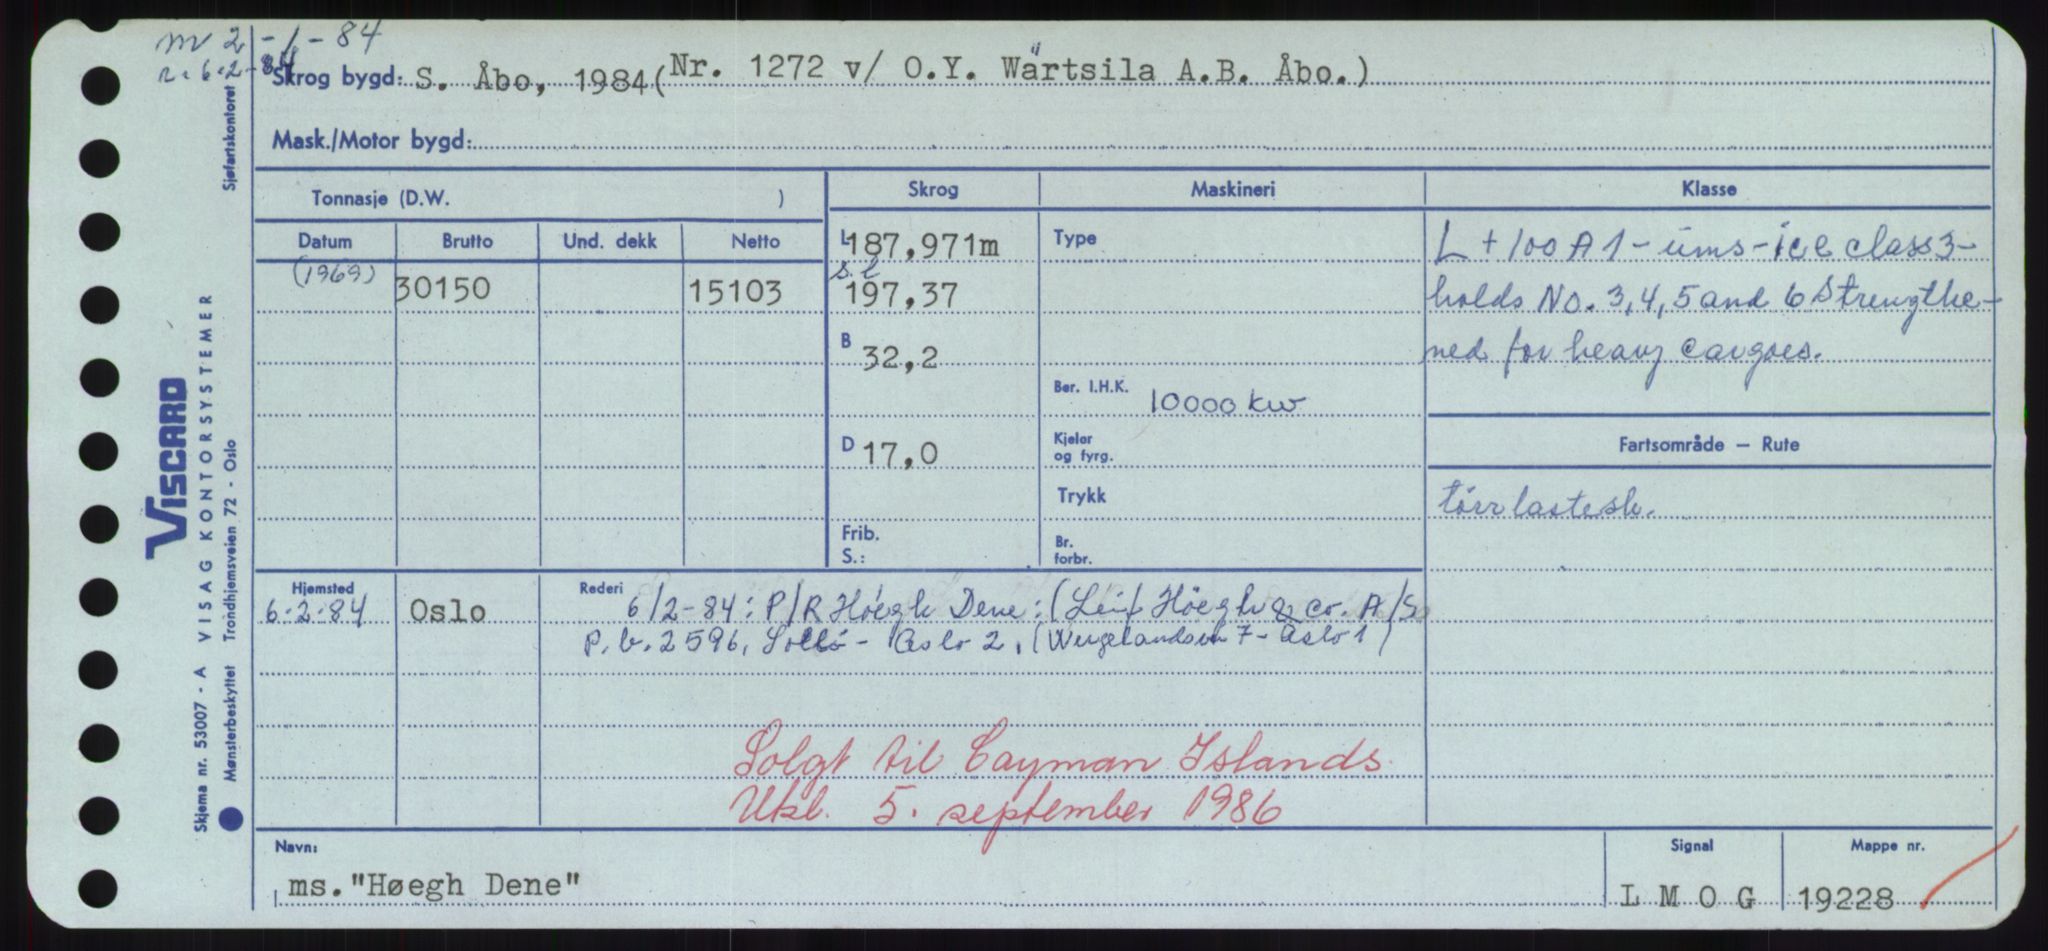 m 2-1-84
r. 6.2-84
Skrog bygd: S. Åbo, 1984 (Nr. 1272 v/ O.Y. Wärtsila A.B. Åbo.)
Mask./Motor bygd:
Tonnasje (D.W. )
Skrog
Maskineri
Klasse
Datum
Brutto
Und. dekk
Netto
(1969)
30150
15103
L 187,971m
s.l
197,37
B 32,2
D 17,0
Frib.
S.:
Type
Ber. I.H.K. 10000 kw
Kjeler
og fyrg.
Trykk
Br.
forbr.
L + 100 A 1 - ums - ice class 3 -
holds No. 3, 4, 5 and 6 Strengthe-
ned for heavy cargoes.
Fartsområde — Rute
törrlastesk.
Hjemsted
6-2-84 Oslo
Rederi
6/2-84: P/R Höegh Dene: (Leif Höegh & co. A/S
P.b. 2596, Solli - Oslo 2. (Wergelandsvn 7 - Oslo 1)
Solgt til Cayman Islands.
Utkl. 5. september 1986
Navn:
ms. "Høegh Dene"
Signal
L M O G
Mappe nr.
19228
VISCARD
VISAG KONTORSYSTEMER
Sjøfartskontoret
Skjema nr. 53007 - A
Mønsterbeskyttet Trondhjemsveien 72 - Oslo